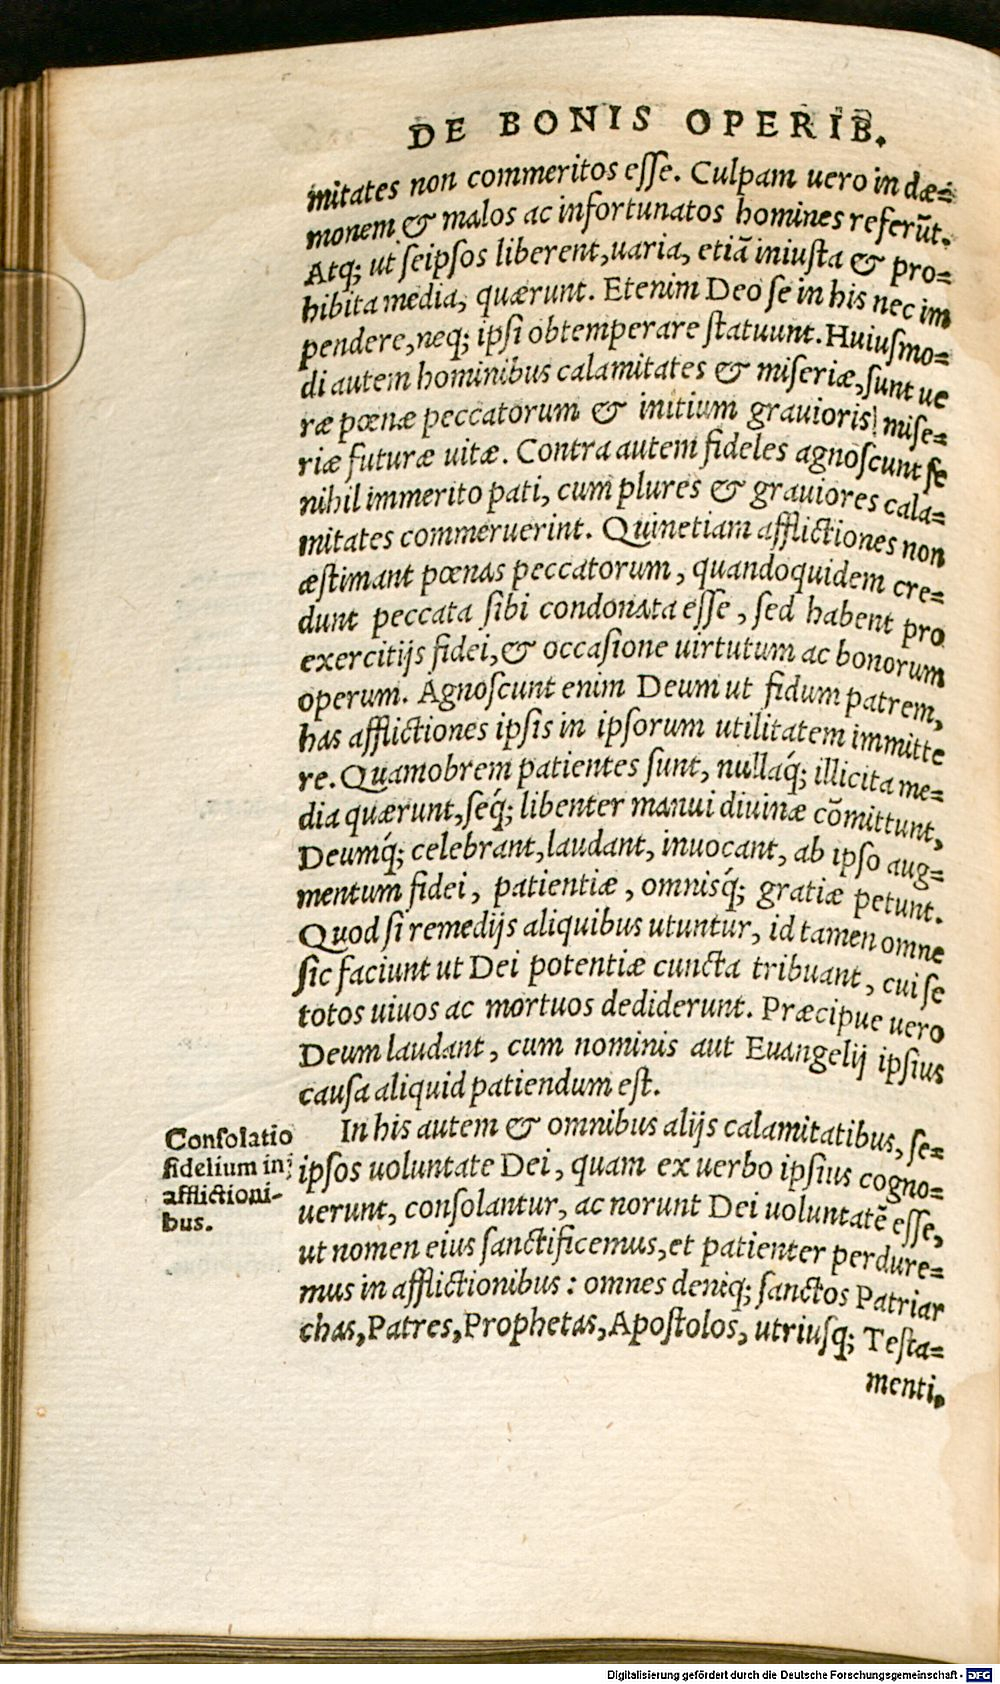 DE BONIS OPERIB.
mitates non commeritos eſſe. Culpam uero in dæ=
monem & malos ac infortunatos homines referūt.
Atq; ut ſeipſos liberent, uaria, etiā iniuſta & pro=
hibita media, quærunt. Etenim Deo ſe in his nec im
pendere, neq; ipſi obtemperare ſtatuunt. Huiuſmo=
di autem hominibus calamitates & miſeriæ, ſunt ue
ræ pœnæ peccatorum & initium grauioris miſe=
riæ futuræ uitæ. Contra autem fideles agnoſcunt ſe
nihil immerito pati, cum plures & grauiores cala=
mitates commeruerint. Quinetiam afflictiones non
æſtimant pœnas peccatorum, quandoquidem cre=
dunt peccata ſibi condonata eſſe, ſed habent pro
exercitijs fidei, & occaſione uirtutum ac bonorum
operum. Agnoſcunt enim Deum ut fidum patrem,
has afflictiones ipſis in ipſorum utilitatem immitte
re. Quamobrem patientes ſunt, nullaq́; illicita me=
dia quærunt, ſeq́; libenter manui diuinæ cōmittunt,
Deumq́; celebrant, laudant, inuocant, ab ipſo aug=
mentum fidei, patientiæ, omnisq́; gratiæ petunt.
Quod ſi remedijs aliquibus utuntur, id tamen omne
ſic faciunt ut Dei potentiæ cuncta tribuant, cui ſe
totos uiuos ac mortuos dediderunt. Præcipue uero
Deum laudant, cum nominis aut Euangelij ipſius
cauſa aliquid patiendum eſt.
Conſolatio
fidelium in
afflictioni-
bus.
In his autem & omnibus alijs calamitatibus, ſe=
ipſos uoluntate Dei, quam ex uerbo ipſius cogno=
uerunt, conſolantur, ac norunt Dei uoluntatē eſſe,
ut nomen eius ſanctificemus, et patienter perdure=
mus in afflictionibus: omnes deniq; ſanctos Patriar
chas, Patres, Prophetas, Apoſtolos, utriuſq; Teſta=
menti.
Digitalisierung gefördert durch die Deutsche Forschungsgemeinschaft - DFG